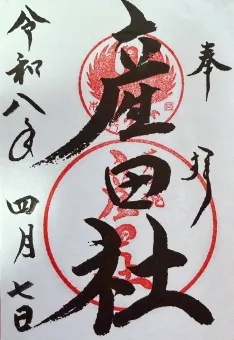 奉拝
産田社
令和八年 四月 七日